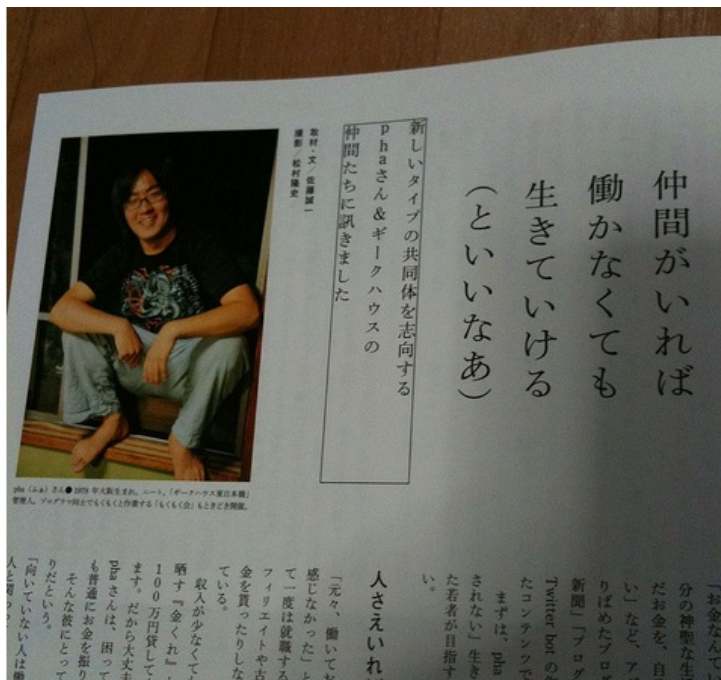 仲間がいれば
働かなくても
生きていける
(といいなあ)
新しいタイプの共同体を志向する
phaさん&ギークハウスの
仲間たちに訊きました
取材・文/佐藤誠二
撮影/松村隆史
pha(ふぁ)さん●1978年大阪生まれ。ニート。「ギークハウス東日本橋」
管理人。プログラマ同士でもくもくと作業する「もくもく会」もときどき開催。
「お金なんて
分の神聖な生
だお金を、自
い」など、ア
りばめたブログ
新聞」「ブログ
Twitter botの
たコンテンツで
まずは、pha
されない」生き
た若者が目指す
い。
人さえいれば
「元々、働いてお
感じなかった」と
て一度は就職する
フィリエイトや古
金を貰ったりしな
ている。
収入が少なくて
晒す『金くれ』
100万円貸して
ます。だから大丈夫
phaさんは、困って
も普通にお金を振り
そんな彼にとって
りだという。
「向いていない人は働
人と関わっ